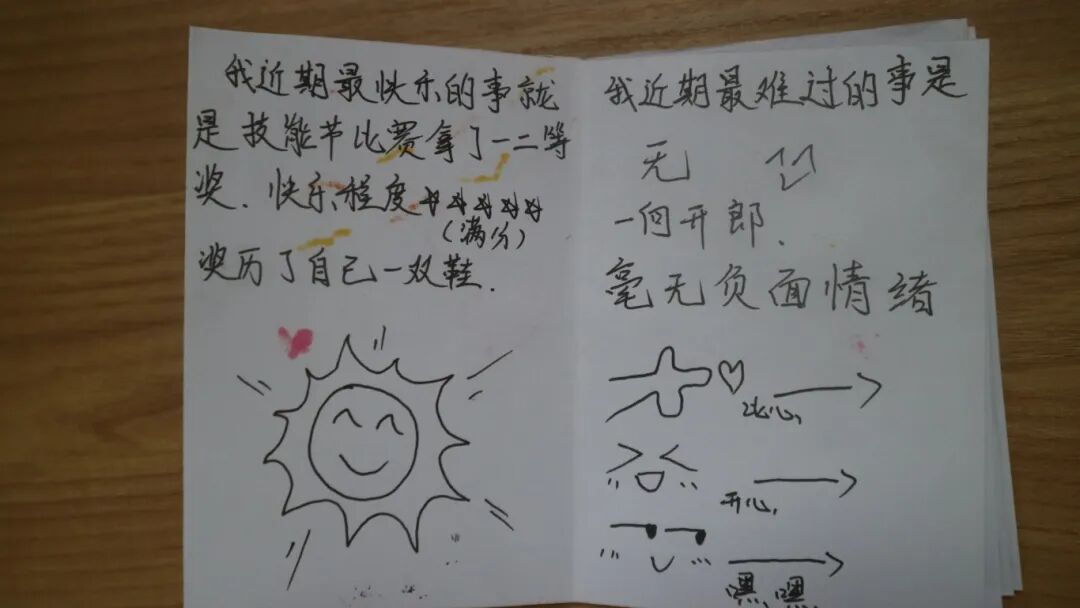 我近期最快乐的事就
是技能节比赛拿了一二等
奖.快乐程度☆☆☆☆☆
(满分)
奖历了自己一双鞋.
我近期最难过的事是
无
一向开郎.
毫无负面情绪
比心,
开心,
嘿、嘿